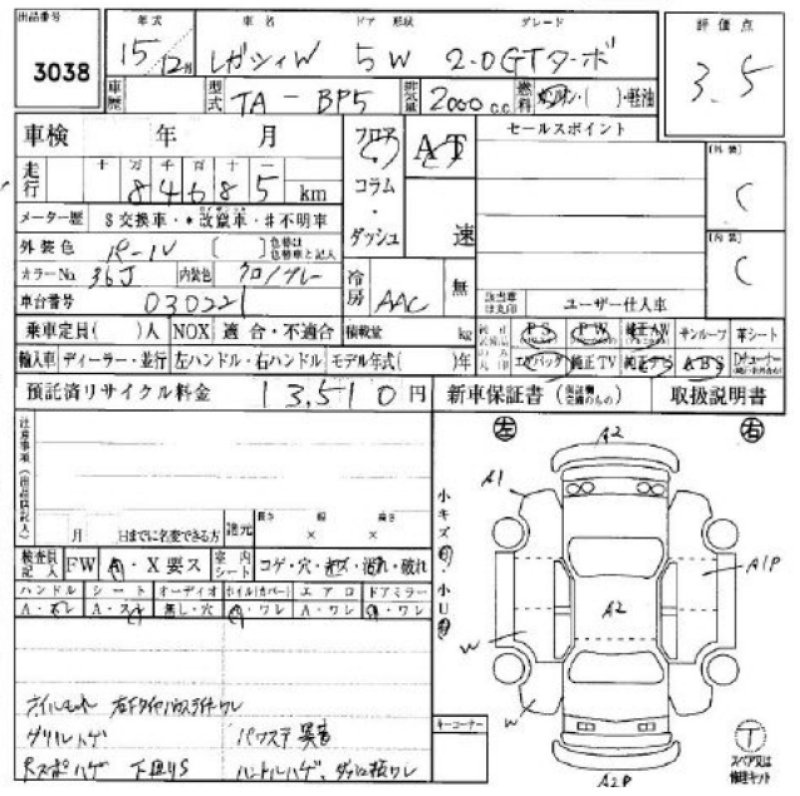 出品番号
3038
年式 車名 ドア 形状 グレード 評価点
15/12月 レガシィW 5W 2.0GTターボ 3.5
車歴 型式 TA-BP5 排気量 2000 c.c. 燃料 ガソリン・( )・軽油
車検 年 月 フロア AT セールスポイント
走行 十 万 千 百 十 一
84685 km コラム
メーター歴 $交換車・*改竄車・#不明車 ダッシュ 速
外装色 パールV 〔 〕 色替は色替車と記入
カラーNo. 36J 内装色 クロ/グレー 冷房 AAC 無
車台番号 030221 該当車は丸印 ユーザー仕入車
(外装) C
(内装) C
乗車定員( )人 NOX 適合・不適合 積載量 kg PS PW 純正AW サンルーフ 革シート
輸入車 ディーラー・並行 左ハンドル・右ハンドル モデル年式( )年 エアバッグ 純正TV 純正ナビ ABS
預託済リサイクル料金 13,510円 新車保証書 取扱説明書
注意事項(出品店記入)
月 日までに名変できる方 諸元 長さ 幅 高さ
× ×
検査員記入 FW A・X要ス 室内シート コゲ・穴・キズ・汚れ・破れ
ハンドル シート オーディオ ホイル(カバー) エアロ ドアミラー
A・スレ A・スレ 無し・穴 A・ワレ A・ワレ A・ワレ
オイルモレ 右Fタイヤハウスライナーワレ
グリルハゲ パワステ異音
Rスポハゲ 下廻りS ハンドルハゲ、ダッシュ板ワレ
小キズ有・小U有
左 右
A2
A1
A1P
A2
W
W
A2P
キーコーナー
T
スペア又は修理キット